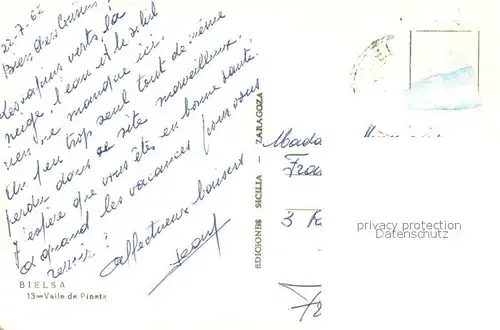 22-7-62
Bien chers Cousins !
des sapins verts, la
neige, l'eau et le soleil
rien ne manque ici.
Un peu trop seul tout de même
perdu dans ce site merveilleux.
J'espère que vous êtes en bonne santé.
a quand les vacances pour vous
revoir ?
affectueux baisers
BIELSA
13—Valle de Pineta
EDICIONES SICILIA - ZARAGOZA
Mada
Fra
3
privacy protection
Datenschutz